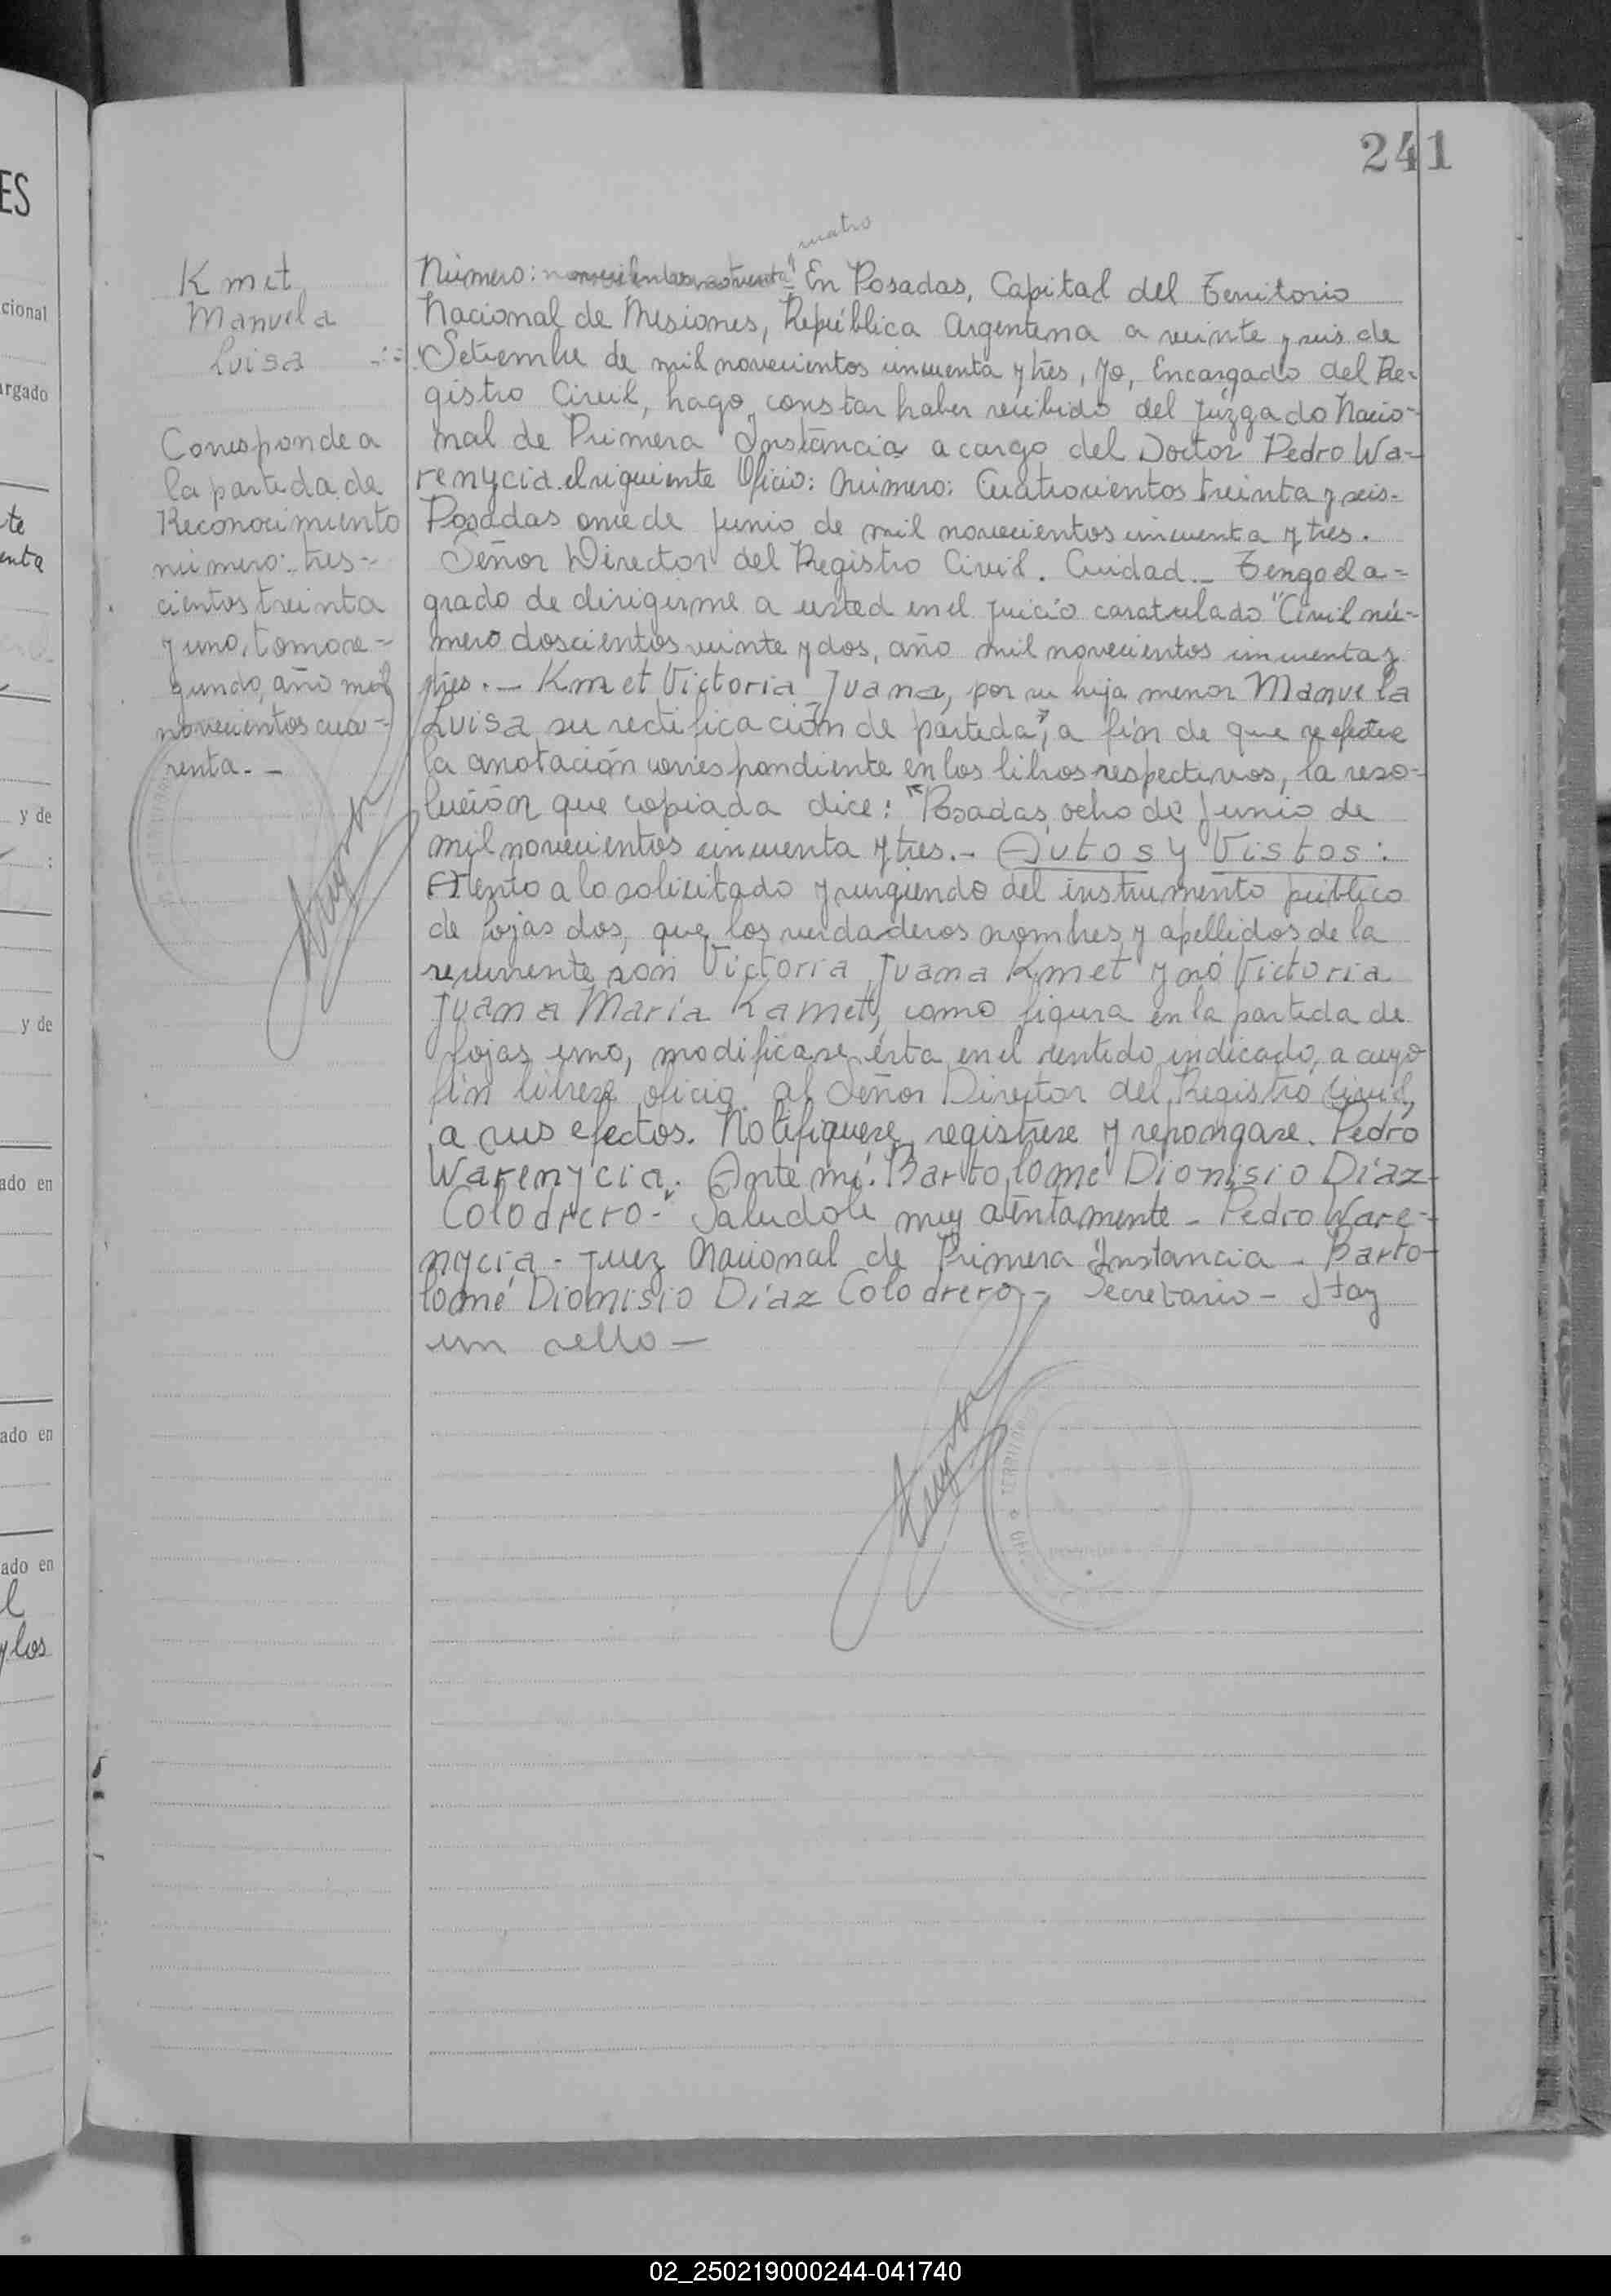 241
Kmet
Manuela
Luisa -:=
Corresponde a
la partida de
Reconocimiento
número: tres-
cientos treinta
y uno, tomo se-
gundo, año mil
novecientos cua-
renta. -
cuatro
Número: novecientos noventa y En Posadas, Capital del Territorio
Nacional de Misiones, República Argentina a veinte y seis de
Setiembre de mil novecientos cincuenta y tres, Yo, Encargado del Re-
gistro Civil, hago constar haber recibido del Juzgado Nacio-
nal de Primera Instancia a cargo del Doctor Pedro Wa-
renycia el siguiente Oficio: Número: Cuatrocientos treinta y seis.
Posadas once de junio de mil novecientos cincuenta y tres.
Señor Director del Registro Civil. Ciudad._ Tengo el a=
grado de dirigirme a usted en el juicio caratulado "Civil nú-
mero doscientos veinte y dos, año mil novecientos cincuenta y
tres. — Kmet Victoria Juana, por su hija menor Manuela
Luisa su rectificación de partida", a fin de que se efectúe
la anotación correspondiente en los libros respectivos, la reso-
lución que copiada dice: "Posadas, ocho de Junio de
mil novecientos cincuenta y tres.- Autos y Vistos:
Atento a lo solicitado y surgiendo del instrumento público
de fojas dos, que los verdaderos nombres y apellidos de la
recurrente son Victoria Juana Kmet y nó Victoria
Juana María Kamet, como figura en la partida de
fojas uno, modifícase ésta en el sentido indicado, a cuyo
fin líbrese oficio al Señor Director del Registro Civil,
a sus efectos. Notifíquese, regístrese y repóngase. Pedro
Warenycia. Ante mí. Bartolomé Dionisio Díaz
Colodrero-" Salúdole muy atentamente - Pedro Ware-
nycia - Juez Nacional de Primera Instancia - Barto-
lomé Dionisio Díaz Colodrero - Secretario - Hay
un sello —
ES
cional
argado
te
enta
y de
:
y de
ado en
ado en
ado en
l
y los
02_250219000244-041740